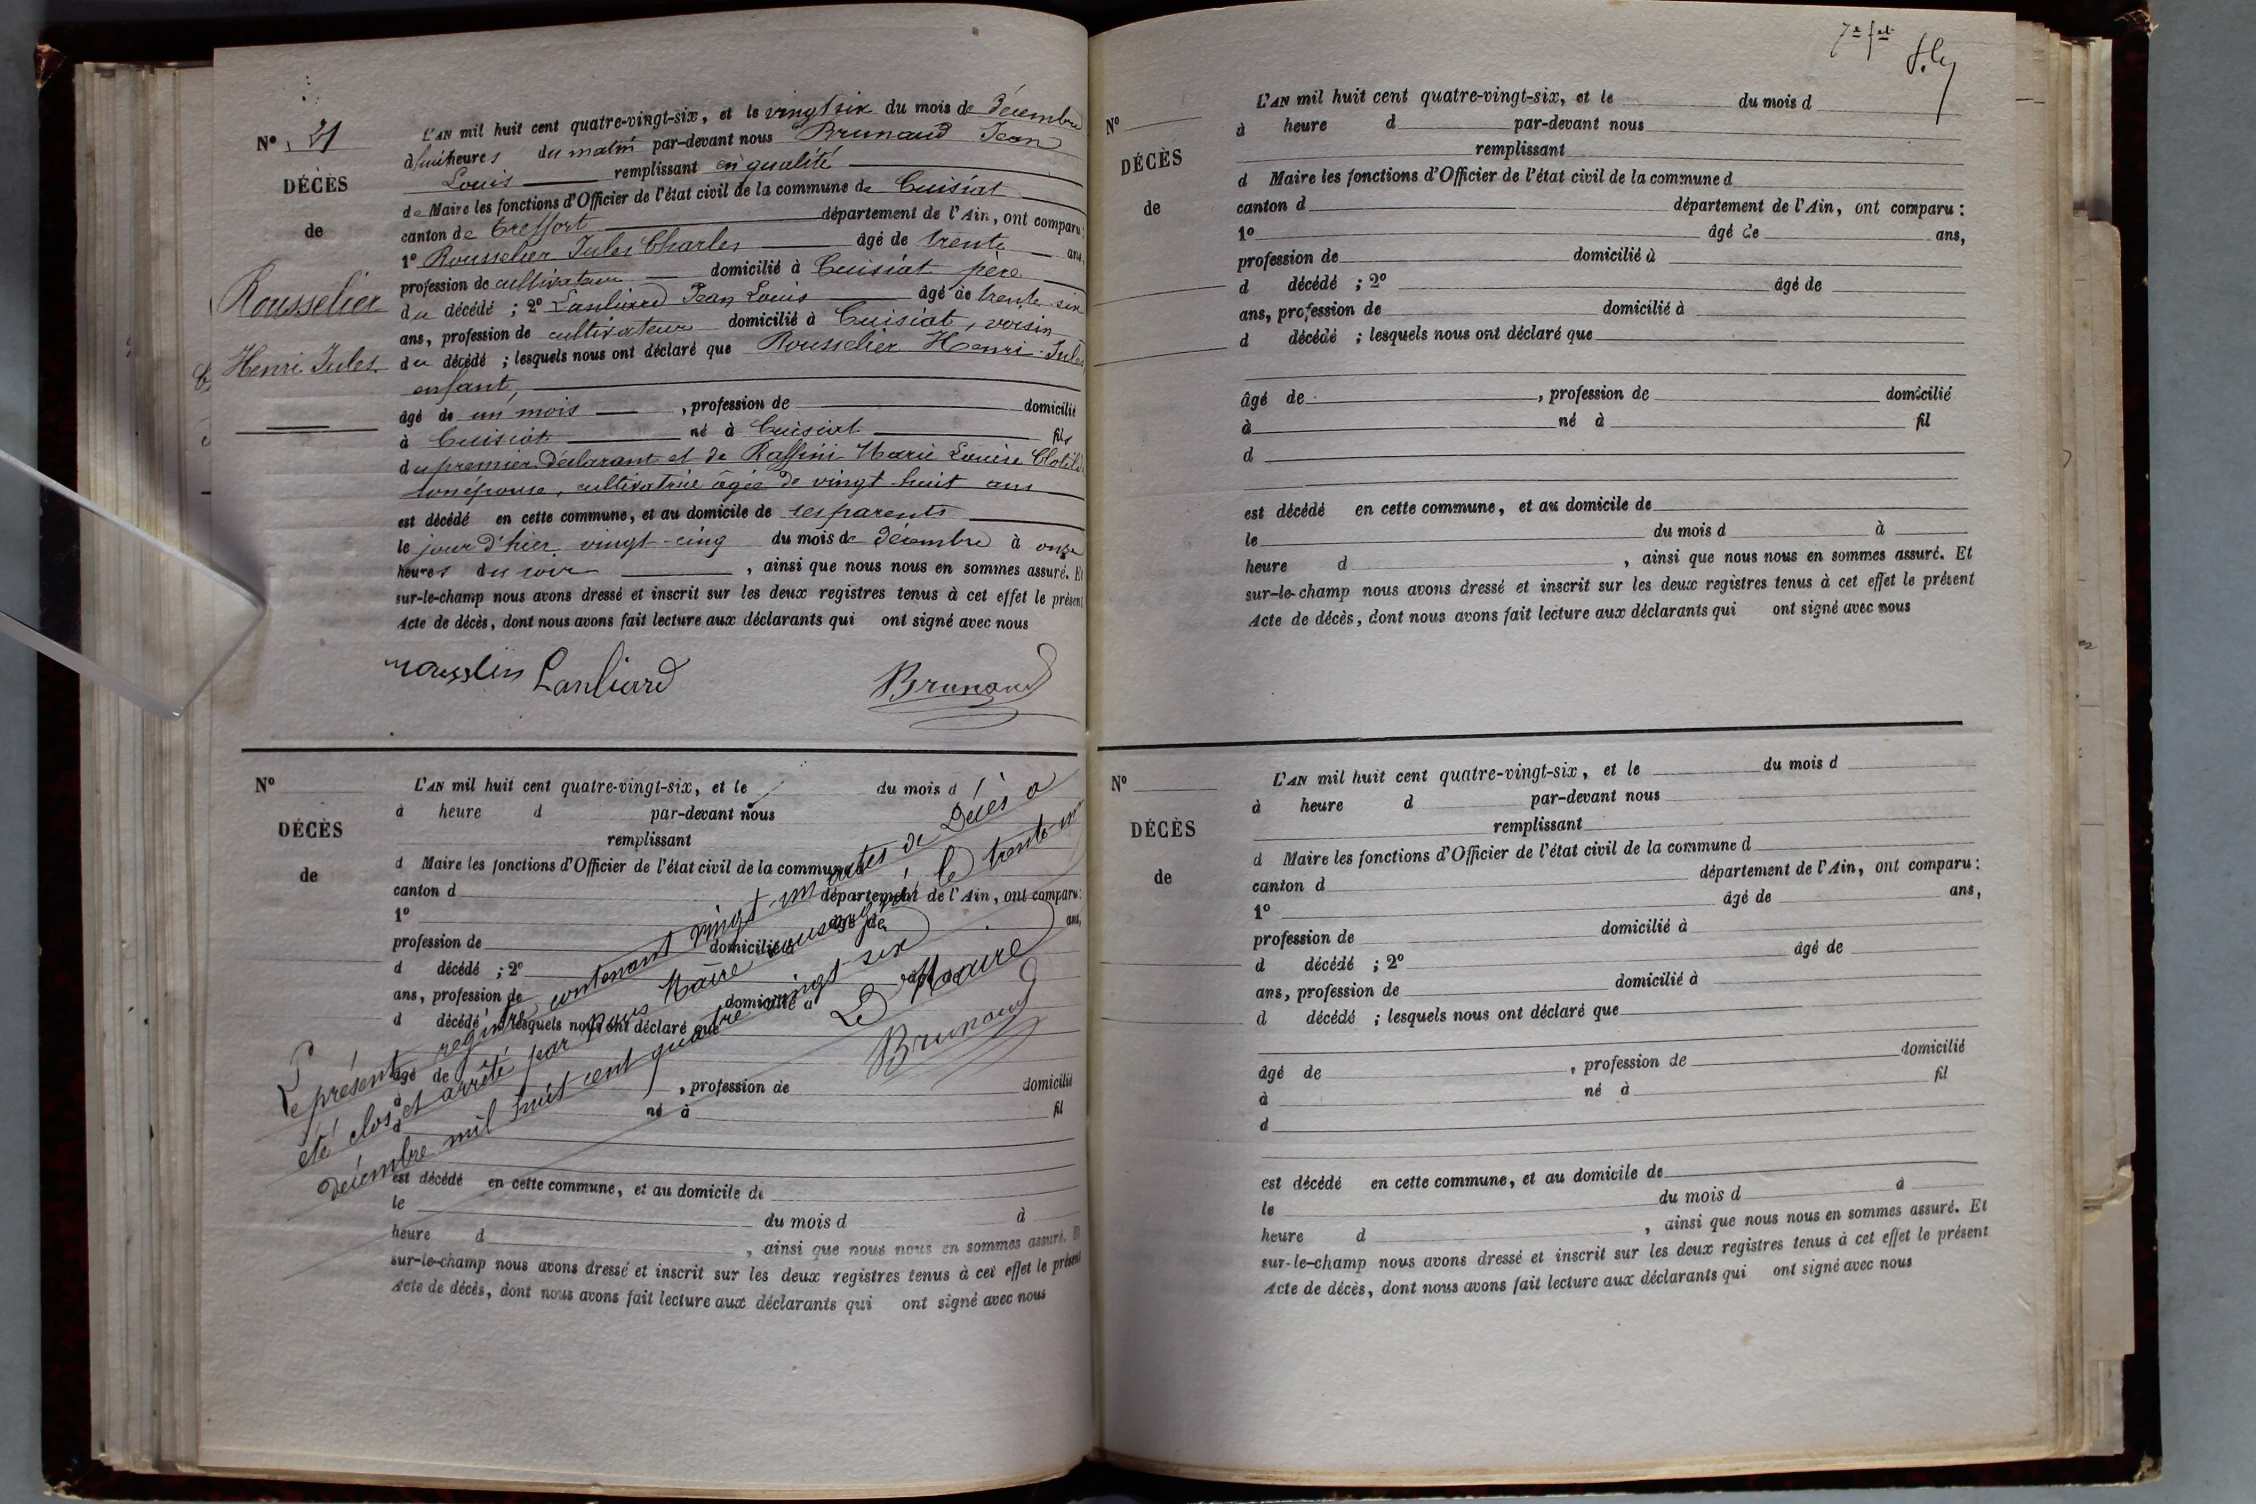 N° 21
DÉCÈS
de
Rousselier
Henri Jules
L'AN mil huit cent quatre-vingt-six, et le vingt six du mois de décembre
à huit heures du matin par-devant nous Brunaud Jean
Louis remplissant en qualité
de Maire les fonctions d'Officier de l'état civil de la commune de Cuisiat
canton de Treffort département de l'Ain, ont comparu:
1° Rousselier Jules Charles âgé de trente ans,
profession de cultivateur domicilié à Cuisiat père
du décédé ; 2° Lanliard Jean Louis âgé de trente six
ans, profession de cultivateur domicilié à Cuisiat, voisin
du décédé ; lesquels nous ont déclaré que Rousselier Henri Jules
enfant,
âgé de un mois , profession de domicilié
à Cuisiat né à Cuisiat fils
du premier déclarant et de Raffini Marie Louise Clotilde
son épouse, cultivatrice âgée de vingt huit ans
est décédé en cette commune, et au domicile de ses parents
le jour d'hier vingt-cinq du mois de décembre à onze
heures du soir , ainsi que nous nous en sommes assuré. Et
sur-le-champ nous avons dressé et inscrit sur les deux registres tenus à cet effet le présent
Acte de décès, dont nous avons fait lecture aux déclarants qui ont signé avec nous
Lanliard Brunaud
N°
DÉCÈS
de
L'AN mil huit cent quatre-vingt-six, et le du mois d
à heure d par-devant nous
remplissant
d Maire les fonctions d'Officier de l'état civil de la commune d
canton d département de l'Ain, ont comparu:
1° âgé de ans,
profession de domicilié à
d décédé ; 2° âgé de
ans, profession de domicilié à
d décédé ; lesquels nous ont déclaré que
âgé de , profession de domicilié
à né à fil
d
est décédé en cette commune, et au domicile de
le du mois d à
heure d , ainsi que nous nous en sommes assuré. Et
sur-le-champ nous avons dressé et inscrit sur les deux registres tenus à cet effet le présent
Acte de décès, dont nous avons fait lecture aux déclarants qui ont signé avec nous
Le présent registre contenant vingt un actes de Décès a
été clos et arrêté par nous Maire soussigné le trente un
décembre mil huit cent quatre vingt six
Le Maire
Brunaud
7e f.et
N°
DÉCÈS
de
L'AN mil huit cent quatre-vingt-six, et le du mois d
à heure d par-devant nous
remplissant
d Maire les fonctions d'Officier de l'état civil de la commune d
canton d département de l'Ain, ont comparu:
1° âgé de ans,
profession de domicilié à
d décédé ; 2° âgé de
ans, profession de domicilié à
d décédé ; lesquels nous ont déclaré que
âgé de , profession de domicilié
à né à fil
d
est décédé en cette commune, et au domicile de
le du mois d à
heure d , ainsi que nous nous en sommes assuré. Et
sur-le-champ nous avons dressé et inscrit sur les deux registres tenus à cet effet le présent
Acte de décès, dont nous avons fait lecture aux déclarants qui ont signé avec nous
N°
DÉCÈS
de
L'AN mil huit cent quatre-vingt-six, et le du mois d
à heure d par-devant nous
remplissant
d Maire les fonctions d'Officier de l'état civil de la commune d
canton d département de l'Ain, ont comparu:
1° âgé de ans,
profession de domicilié à
d décédé ; 2° âgé de
ans, profession de domicilié à
d décédé ; lesquels nous ont déclaré que
âgé de , profession de domicilié
à né à fil
d
est décédé en cette commune, et au domicile de
le du mois d à
heure d , ainsi que nous nous en sommes assuré. Et
sur-le-champ nous avons dressé et inscrit sur les deux registres tenus à cet effet le présent
Acte de décès, dont nous avons fait lecture aux déclarants qui ont signé avec nous